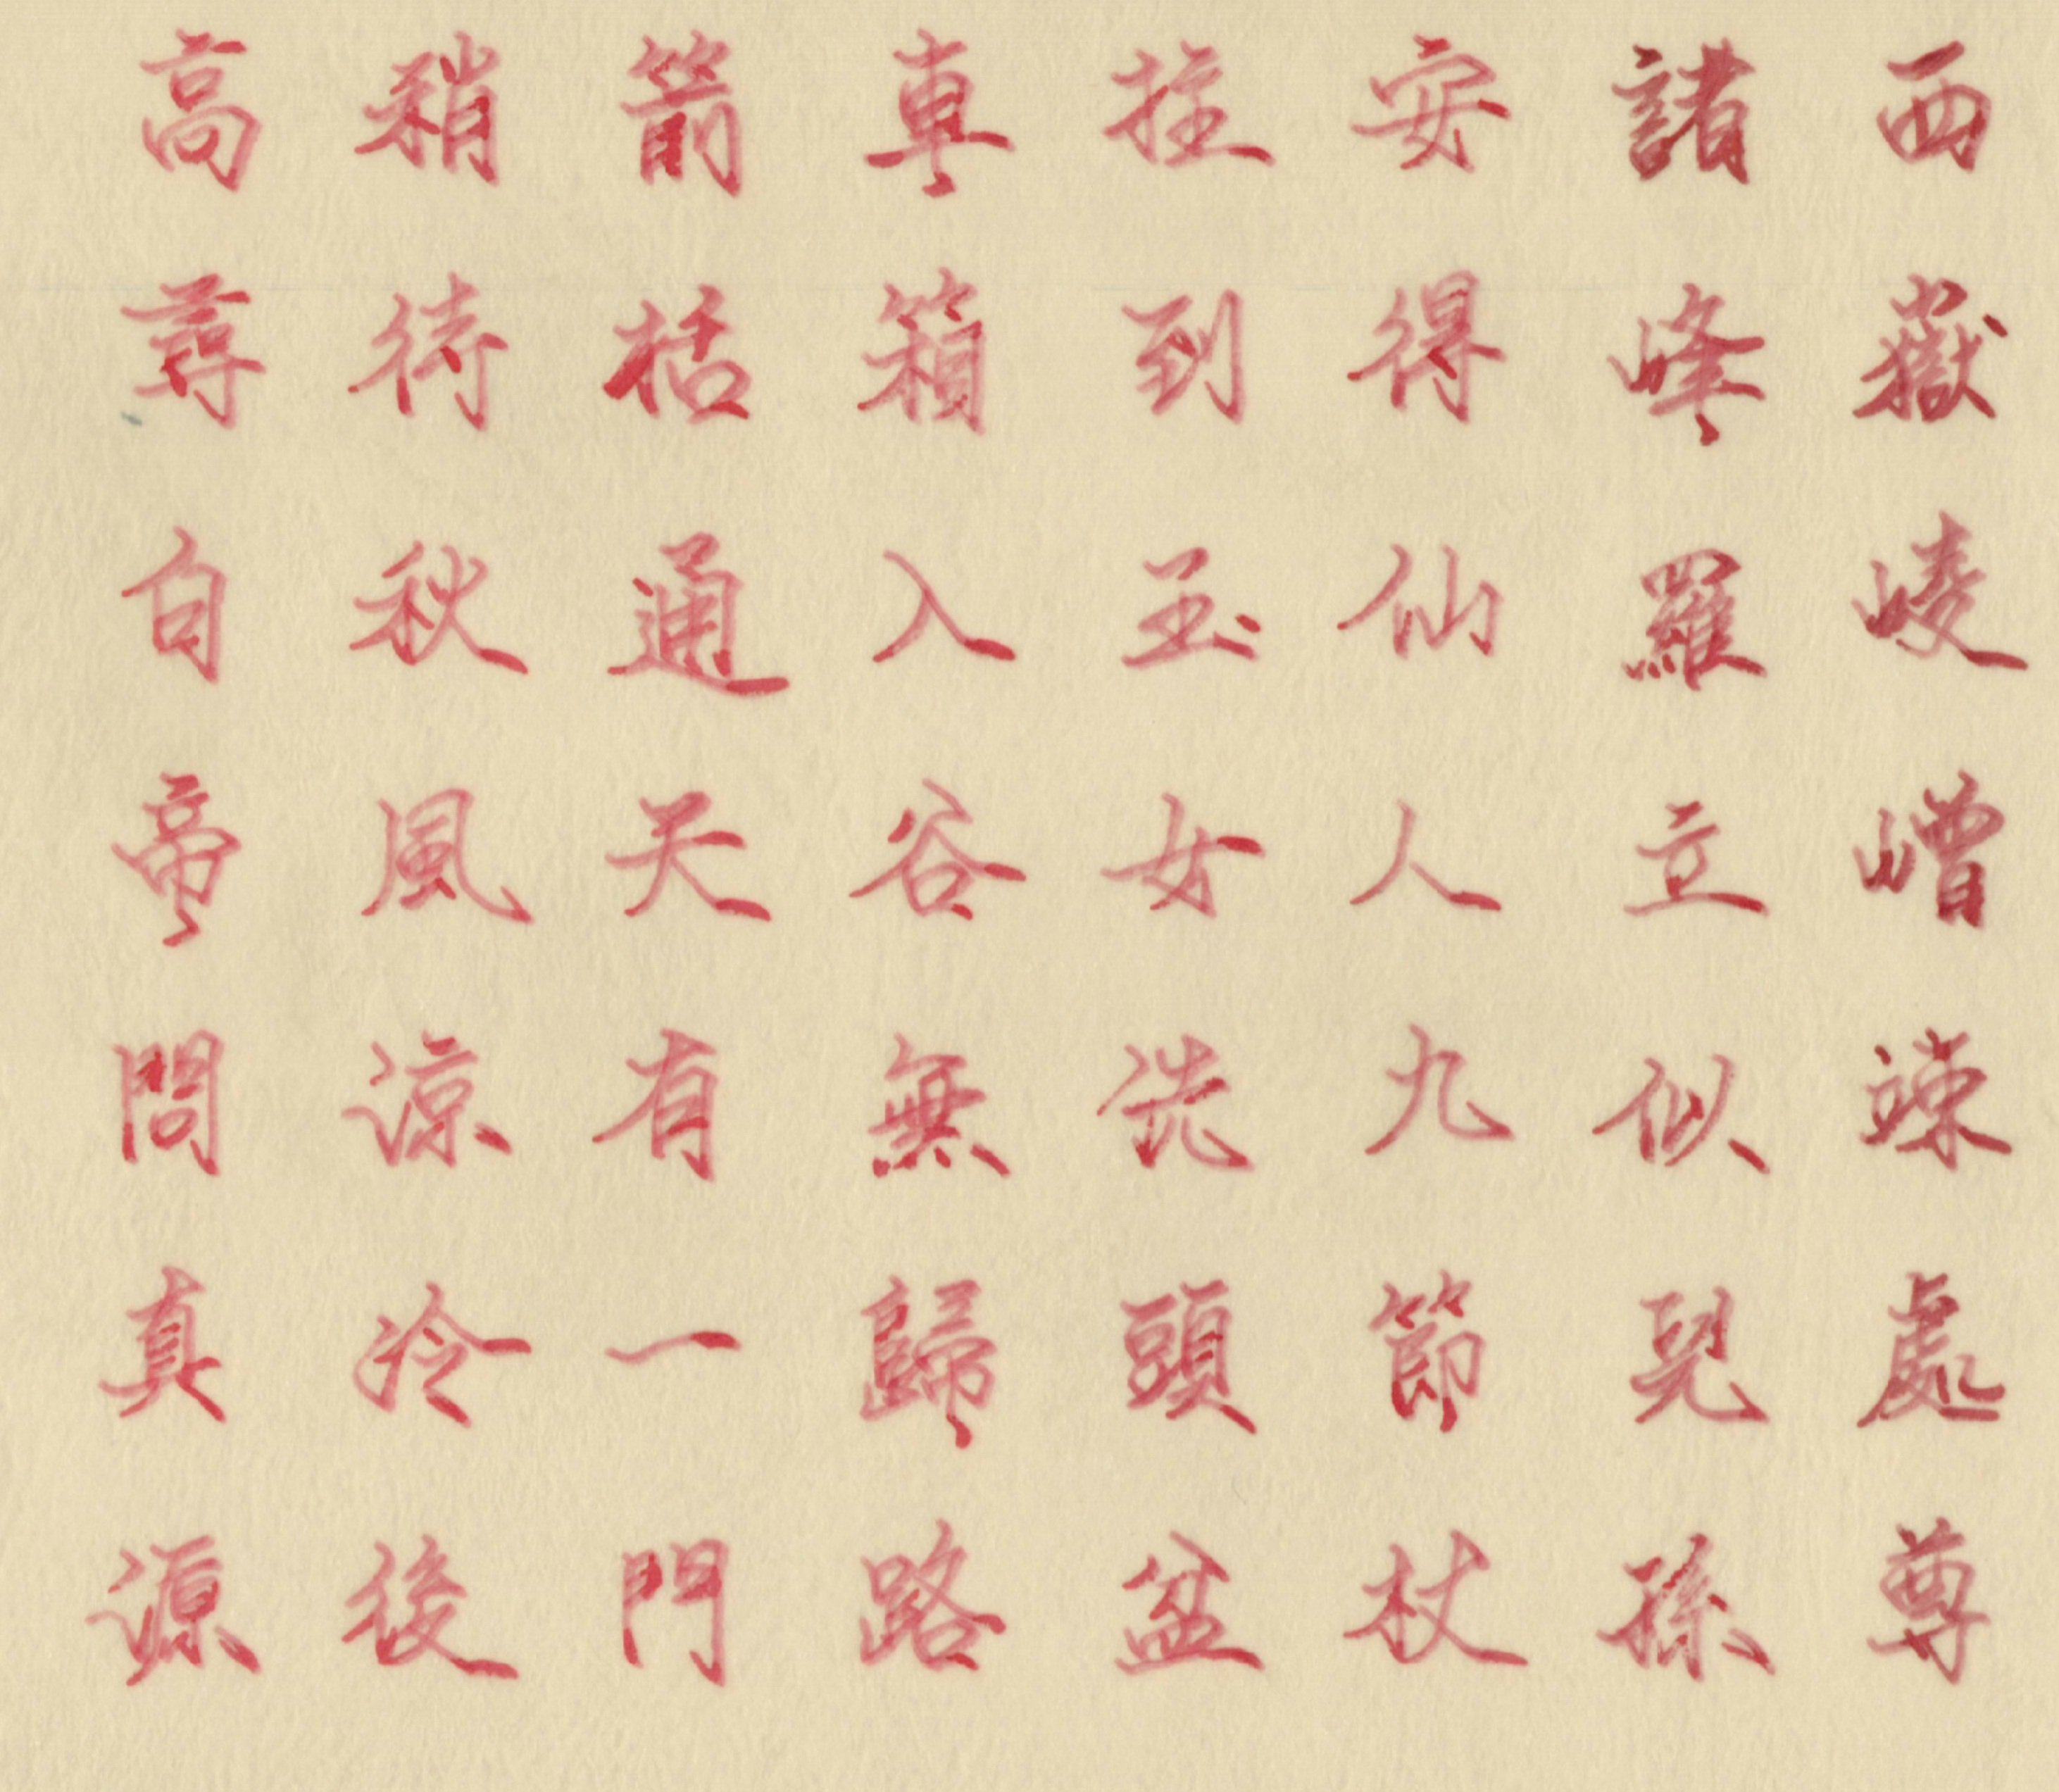 西嶽崚嶒竦處尊
諸峰羅立似兒孫
安得仙人九節杖
拄到玉女洗頭盆
車箱入谷無歸路
箭栝通天有一門
稍待秋風涼冷後
高尋白帝問真源